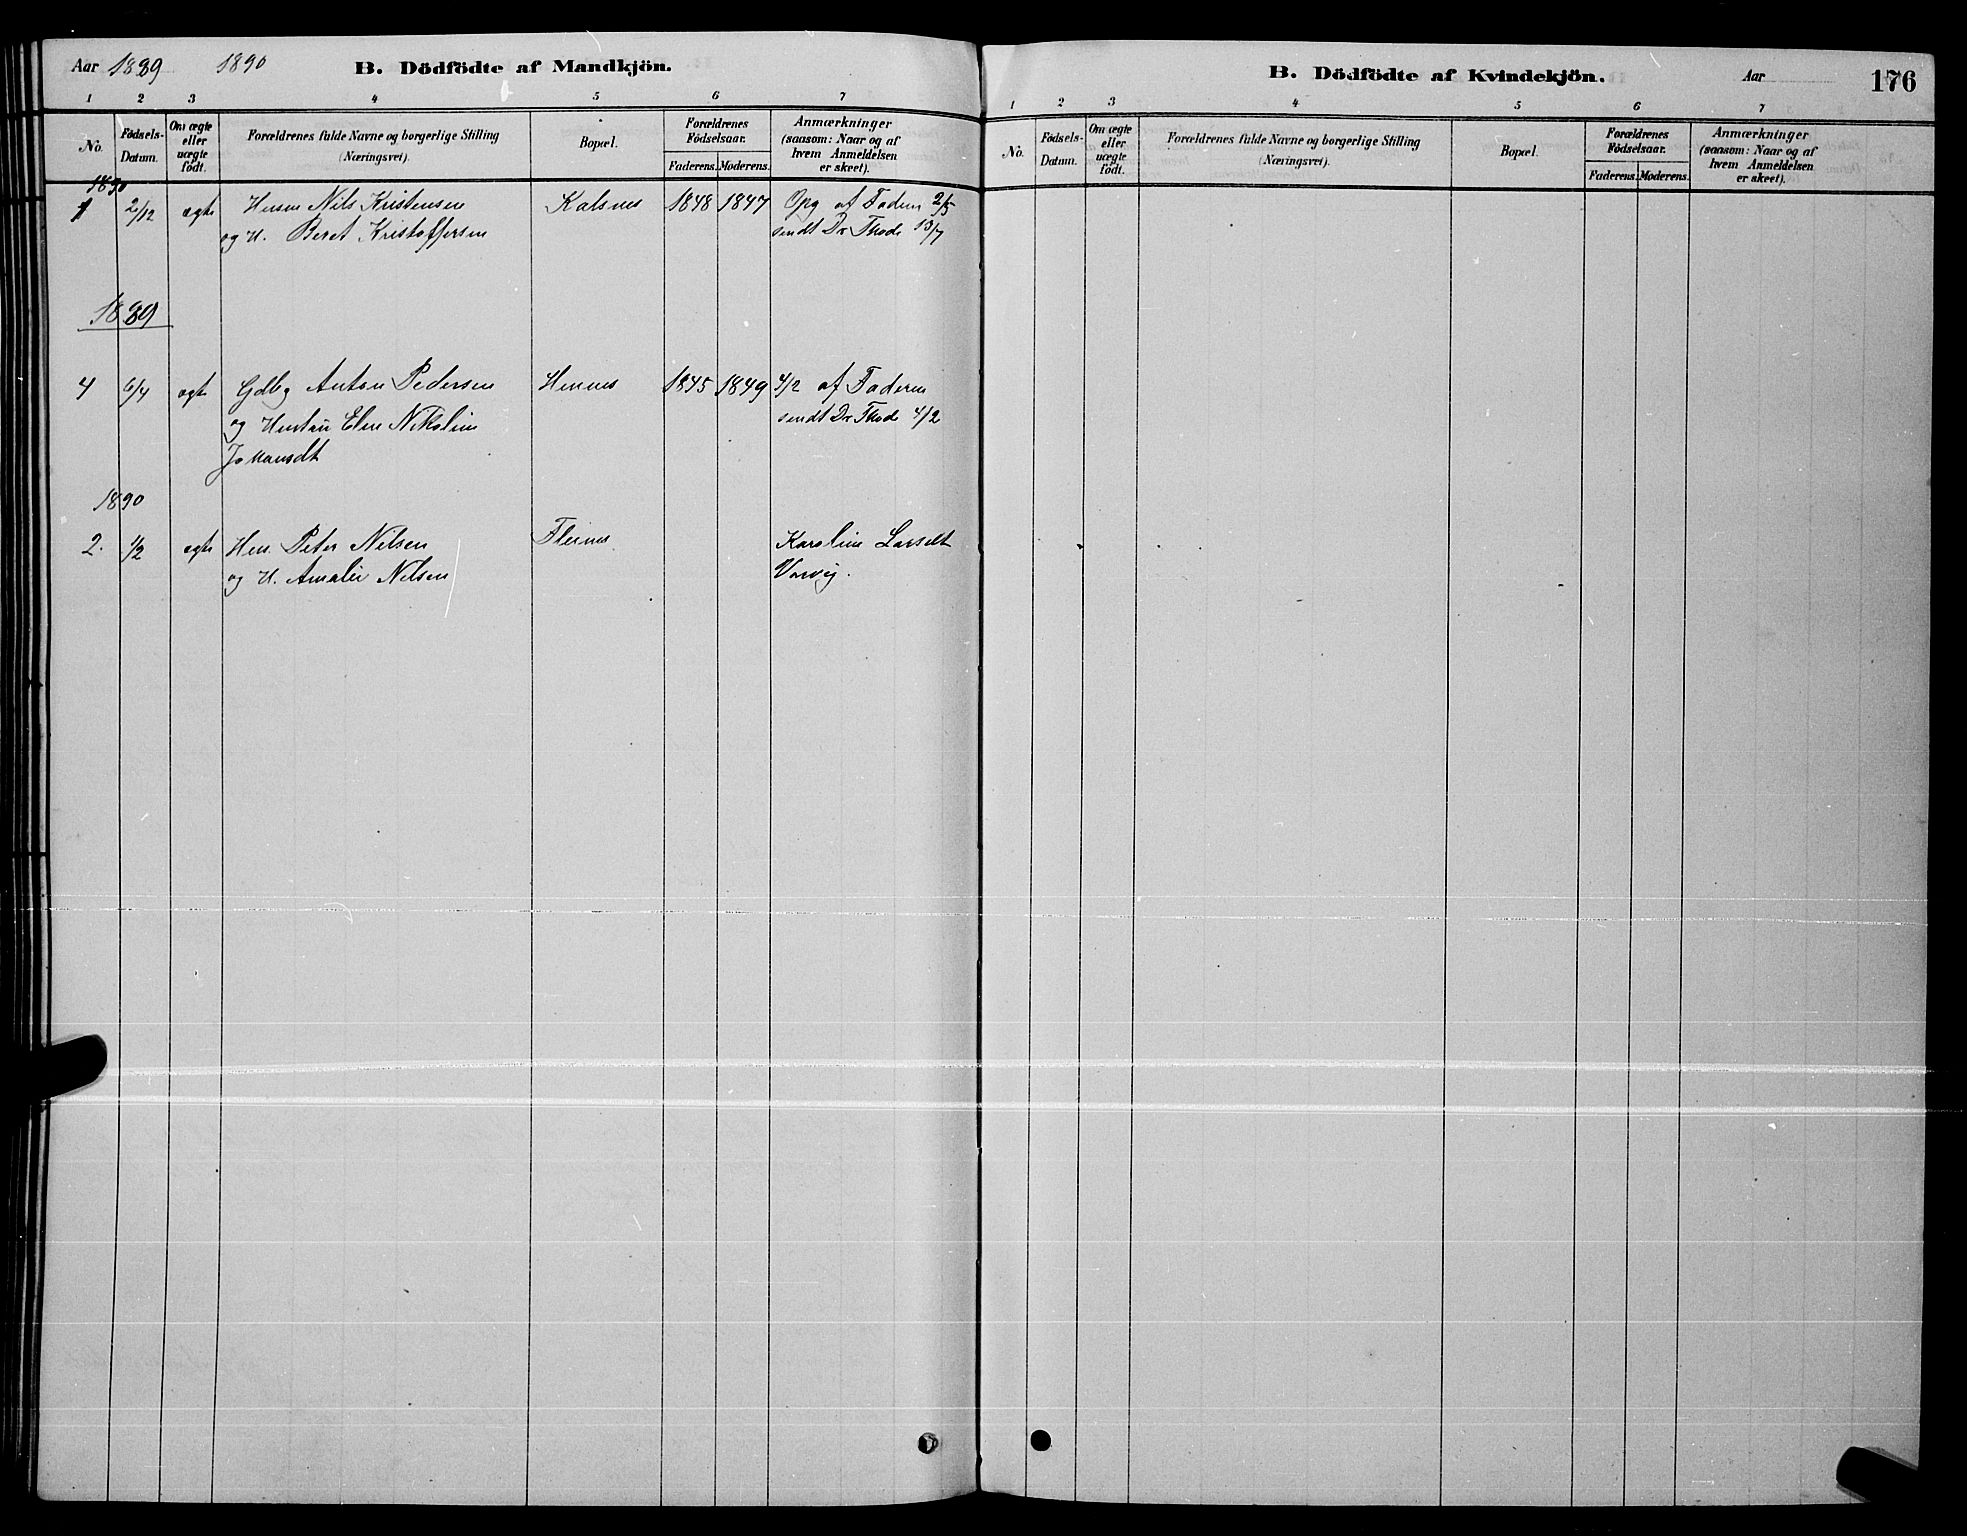 Aar 1889 1890 B. Dödfödte af Mandkjön.
1 2 3 4 5 6 7
No. Födsels-Datum. Om ægte eller uægte födt. Forældrenes fulde Navne og borgerlige Stilling (Næringsvei). Bopæl. Forældrenes Födselsaar. Faderens. Moderens. Anmærkninger (saasom: Naar og af hvem Anmeldelsen er skeet).
1890
1 2/12 ægte Husm Nils Kristensen Kalsnes 1848 1847 Opg af Faderen 2/5
og H. Beret Kristoffersen sendt Dr Thode 13/7
1889
4 6/4 ægte Gdbg Anton Pedersen Hennes 1845 1849 4/2 af Faderen
og Hustru Elen Nikoline sendt Dr Thode 4/2
Johansdt
1890
2. 1/2 ægte Hus. Peter Nilsen Fleines Karoline Larsdt
og H. Amalie Nilsen Varvig.
B. Dödfödte af Kvindekjön. Aar 176
1 2 3 4 5 6 7
No. Födsels-Datum. Om ægte eller uægte födt. Forældrenes fulde Navne og borgerlige Stilling (Næringsvei). Bopæl. Forældrenes Födselsaar. Faderens. Moderens. Anmærkninger (saasom: Naar og af hvem Anmeldelsen er skeet).